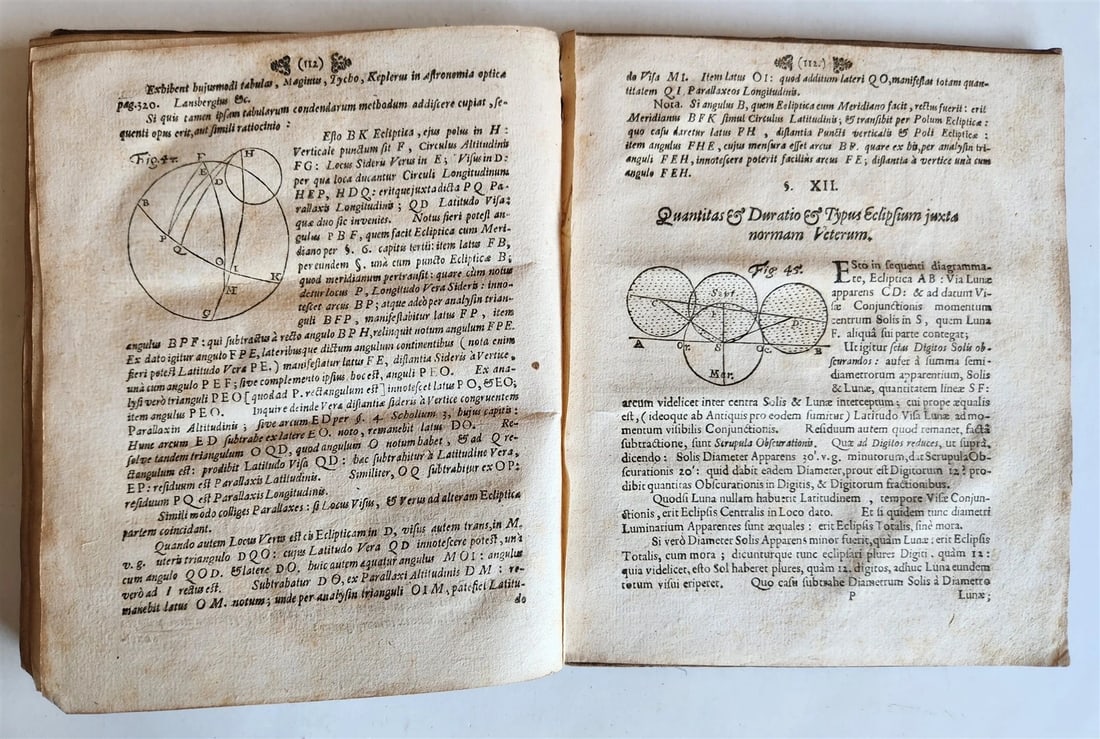 (112)
Exhibent hujusmodi tabulas, Maginus, Tycho, Keplerus in Astronomia optica
pag. 320. Lansbergius &c.
Si quis tamen ipsam tabularum condendarum methodum addiscere cupiat, se-
quenti opus erit, aut simili ratiocinio:
Fig. 44.
F H
E
D
B
P
Q
O I
K
M
G
Esto BK Ecliptica, ejus polus in H:
Verticale punctum sit F, Circulus Altitudinis
FG: Locus Sideris Verus in E; Visus in D:
per qua loca ducantur Circuli Longitudinum
HEP, HDQ: eritque juxta dicta PQ Pa-
rallaxis Longitudinis; QD Latitudo Visa:
quæ duo sic invenies. Notus fieri potest an-
gulus PBF, quem facit Ecliptica cum Meri-
diano per §. 6. capitis tertii: item latus FB,
per eundem §. unà cum puncto Eclipticæ B;
quod meridianum pertransit: quare cùm notus
detur locus P, Longitudo Vera Sideris: inno-
tescet arcus BP; atque adeò per analysin trian-
guli BFP, manifestabitur latus FP, item
angulus BPF: qui subtractus à recto angulo BPH, relinquit notum angulum FPE.
Ex dato igitur angulo FPE, lateribusque dictum angulum continentibus (nota enim
fieri potest Latitudo Vera PE.) manifestatur latus FE, distantia Sideris à Vertice,
unà cum angulo PEF; sive complemento ipsius, hoc est, anguli PEO. Ex ana-
lysi verò trianguli PEO [quod ad P. rectangulum est] innotescet latus PO, & EO;
item angulus PEO. Inquire deinde Vera, distantiæ sideris à Vertice congruentem
Parallaxin Altitudinis; sive arcum ED per §. 4. Scholium 3, hujus capitis:
Hunc arcum ED subtrahe ex latere EO. noto, remanebit latus DO. Re-
solve tandem triangulum OQD, quod angulum O notum habet, & ad Q re-
ctangulum est: prodibit Latitudo Visa QD: hæc subtrahitur à Latitudine Vera,
EP: residuum est Parallaxis Latitudinis. Similiter, OQ subtrahitur ex OP:
residuum PQ est Parallaxis Longitudinis.
Simili modo colliges Parallaxes: si Locus Visus, & Verus ad alteram Eclipticæ
partem coincidant.
Quando autem Locus Verus est cis Eclipticam in D, visus autem trans, in M.
v. g. uteris triangulo DQO: cujus Latitudo Vera QD innotescere potest, unà
cum angulo QOD. & latere DO. huic autem æquatur angulus MOI: angulus
verò ad I rectus est. Subtrahatur DO, ex Parallaxi Altitudinis DM: re-
manebit latus OM. notum; unde per analysin trianguli OIM, patefiet Latitu-
do
(112.)
do Visa MI. Item latus OI: quod additum lateri QO, manifestat totam quan-
titatem QI. Parallaxeos Longitudinis.
Nota. Si angulus B, quem Ecliptica cum Meridiano facit, rectus fuerit: erit
Meridianus BFK simul Circulus Latitudinis; & transibit per Polum Eclipticæ:
quo casu daretur latus FH, distantia Puncti verticalis & Poli Eclipticæ:
item angulus FHE, cujus mensura esset arcus BP. quare ex his, per analysin tri-
anguli FEH, innotescere poterit faciliùs arcus FE; distantia à vertice unà cum
angulo FEH.
§. XII.
Quantitas & Duratio & Typus Eclipsium juxta
normam Veterum.
Fig. 45.
C
Sept.
F
D
A Or. S Oc. B
Mer.
ESto in sequenti diagramma-
te, Ecliptica AB: Via Lunæ
apparens CD: & ad datum Vi-
sæ Conjunctionis momentum
centrum Solis in S, quem Luna
F. aliquâ sui parte contegat;
Ut igitur scias Digitos Solis ob-
scurandos: aufer à summa semi-
diametrorum apparentium, Solis
& Lunæ, quantitatem lineæ SF:
arcum videlicet inter centra Solis & Lunæ interceptum; cui propè æqualis
est, (ideoque ab Antiquis pro eodem sumitur) Latitudo Visa Lunæ ad mo-
mentum visibilis Conjunctionis. Residuum autem quod remanet, factâ
subtractione, sunt Scrupula Obscurationis. Quæ ad Digitos reduces, ut suprà,
dicendo: Solis Diameter Apparens 30'. v. g. minutorum, dat Scrupula Ob-
scurationis 20': quid dabit eadem Diameter, prout est Digitorum 12? pro-
dibit quantitas Obscurationis in Digitis, & Digitorum fractionibus.
Quodsi Luna nullam habuerit Latitudinem, tempore Visæ Conjun-
ctionis, erit Eclipsis Centralis in Loco dato. Et si quidem tunc diametri
Luminarium Apparentes sunt æquales: erit Eclipsis Totalis, sinè mora.
Si verò Diameter Solis Apparens minor fuerit, quàm Lunæ: erit Eclipsis
Totalis, cum mora; dicunturque tunc eclipsari plures Digiti. quàm 12:
quia videlicet, etsi Sol haberet plures, quàm 12. digitos, adhuc Luna eundem
totum visui eriperet. Quo casu subtrahe Diametrum Solis à Diametro
P Lunæ;